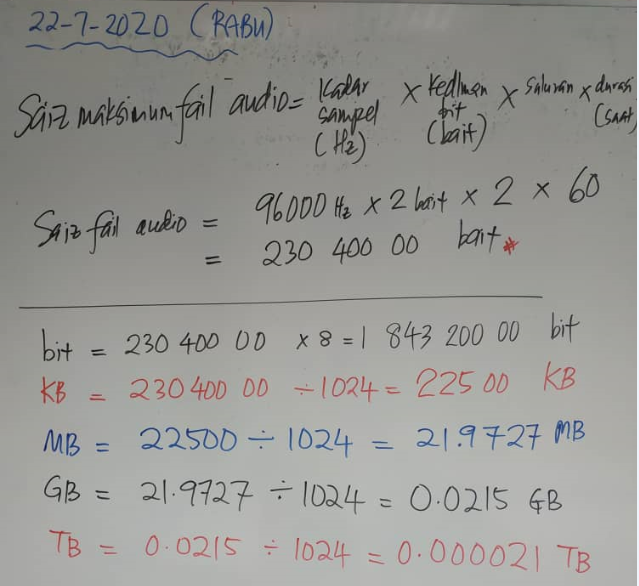 22-7-2020 (RABU)
Saiz maksimum fail audio = Kadar sampel (Hz) × Kedlman bit (bait) × Saluran × durasi (SAAT)
Saiz fail audio = 96000 Hz × 2 bait × 2 × 60
= 230 400 00 bait *
bit = 230 400 00 × 8 = 1 843 200 00 bit
KB = 230 400 00 ÷ 1024 = 225 00 KB
MB = 22500 ÷ 1024 = 21.9727 MB
GB = 21.9727 ÷ 1024 = 0.0215 GB
TB = 0.0215 ÷ 1024 = 0.000021 TB